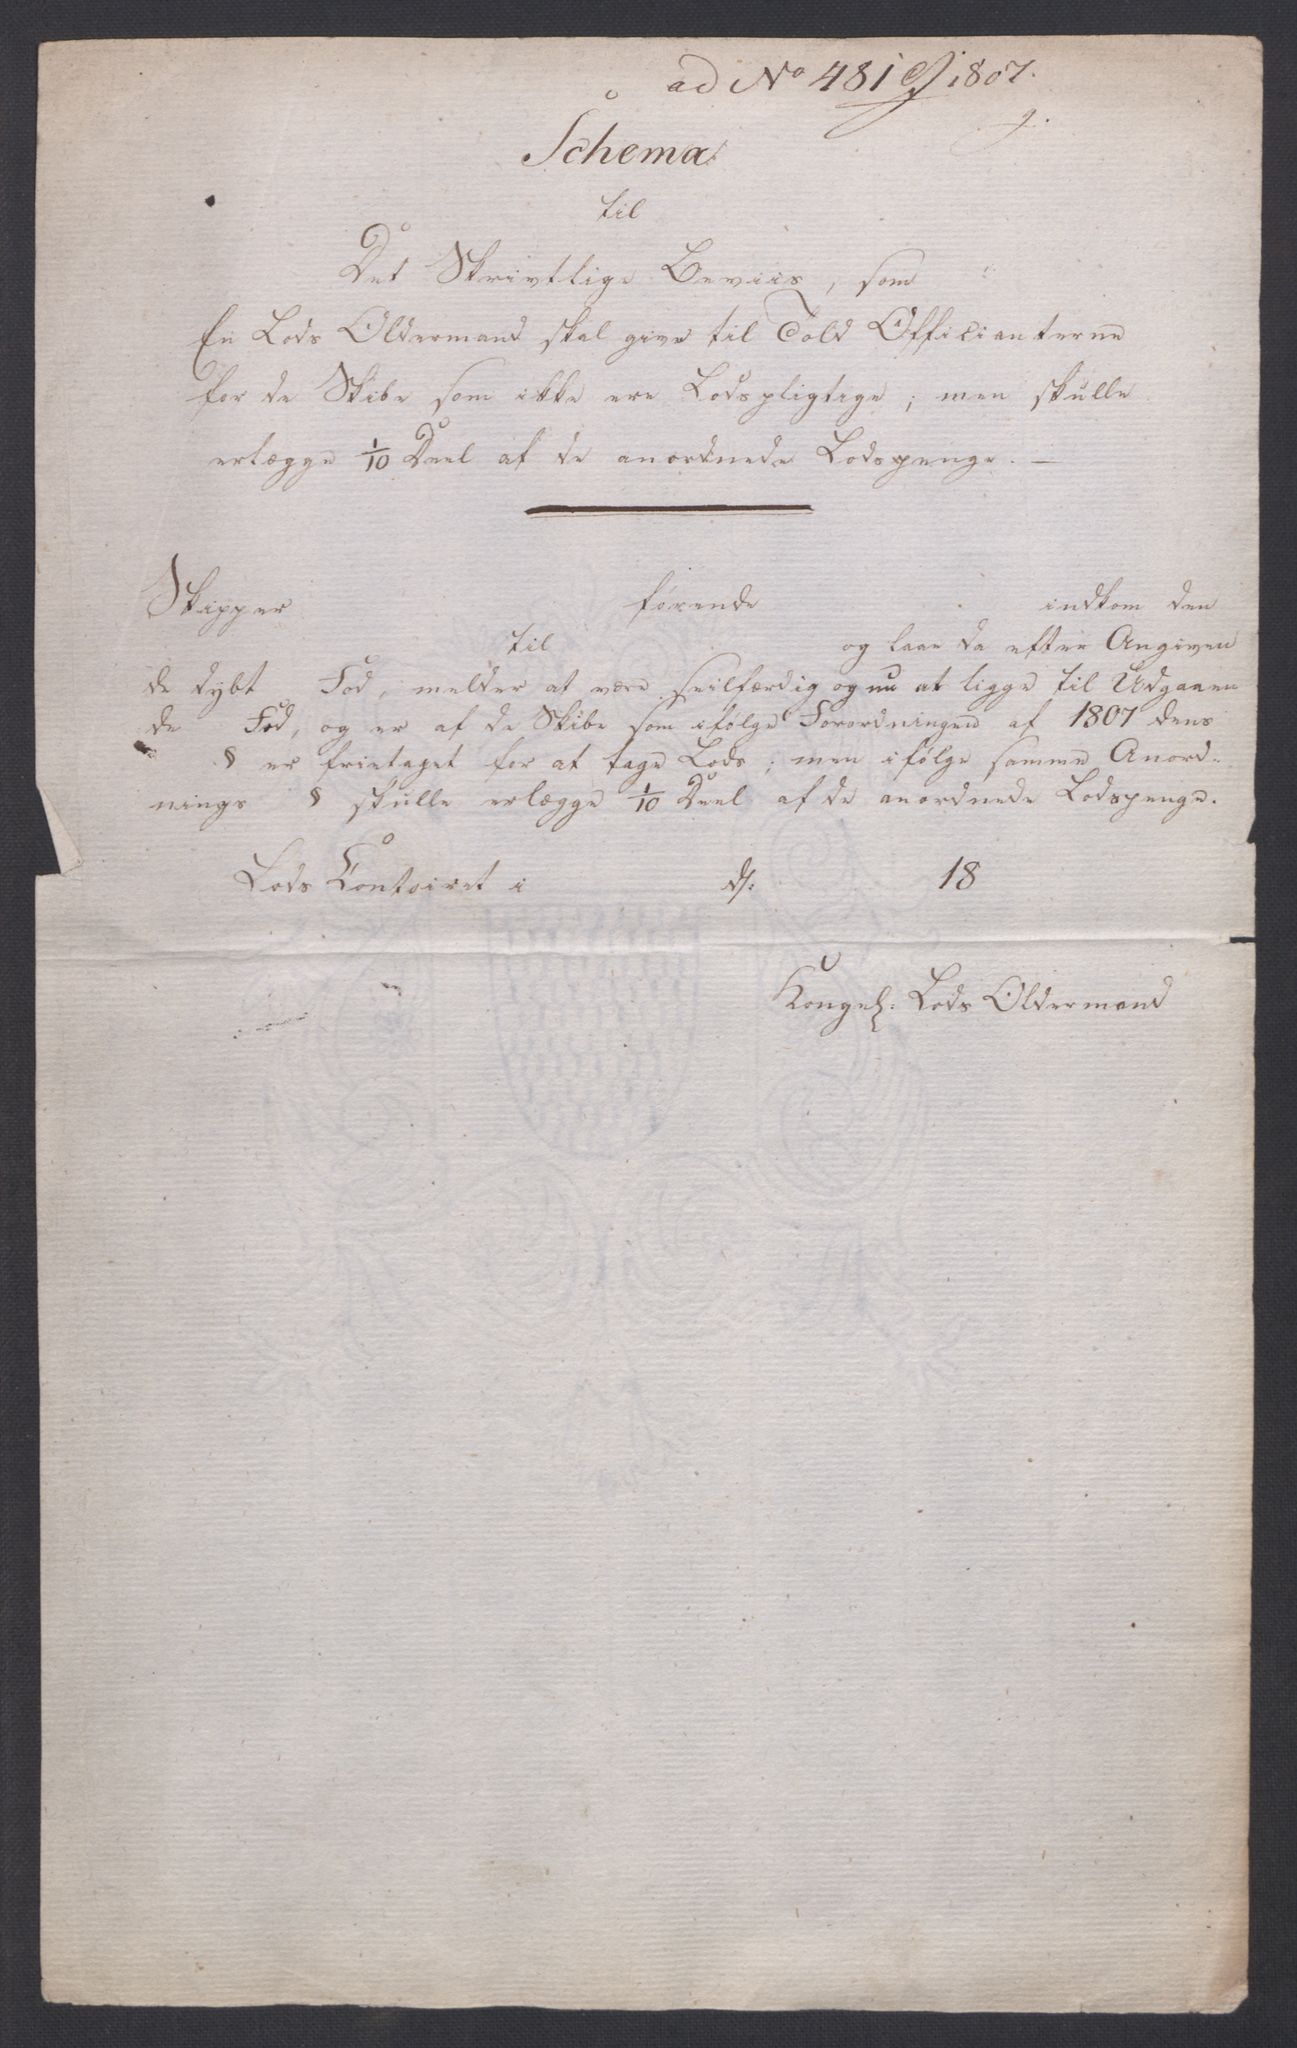 ad No 481 1807.
Schema
til
Det Skrivtlige Beviis, som
En Lods Oldermand skal give til Told Officianterne
for de Skibe som ikke ere Lodspligtige; men skulle
erlægge 1/10 Deel af de anordnede Lodspenge. —
Skipper førende indkom den
til og laae da efter Angiven
de dybt Fod, melder at være seilfærdig og nu at ligge til Udgaaen
de Fod, og er af de Skibe som ifølge Forordningen af 1807 dens
§ er frietaget for at tage Lods; men ifølge samme Anord-
nings § skulle erlægge 1/10 Deel af de anordnede Lodspenge.
Lods Contoiret i d: 18
Kongel: Lods Oldermand